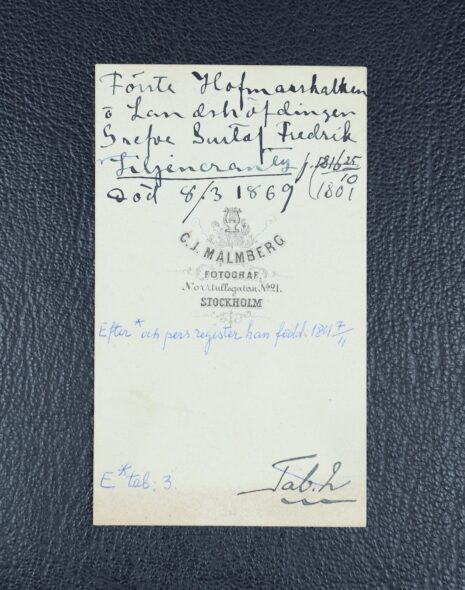 Förste Hofmarskalken
o Landshöfdingen
Grefve Gustaf Fredrik
Liljencrantz f. 1816 25/10
Död 8/3 1869 (1801
C. J. MALMBERG
FOTOGRAF,
Norrtullsgatan No 21.
STOCKHOLM
Efter * och pers register han född 1801 7/11
E* tab: 3.
Tab. 2